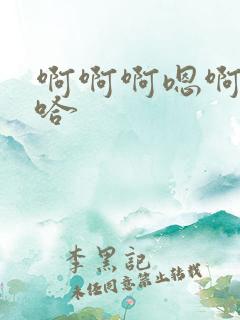 啊啊啊嗯啊
哈~
李黑記
未经同意禁止转载